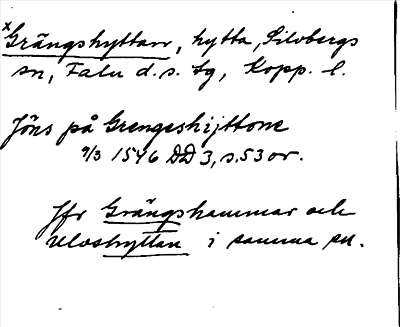 x Grängshyttan, hytta, Silvbergs
sn, Falu d.s. tg, Kopp. l.
Jöns på Grengeshijttone
9/3 1546 DD 3, s.53 or.
Jfr Grängshammar och
Ulvshyttan i samma sn.